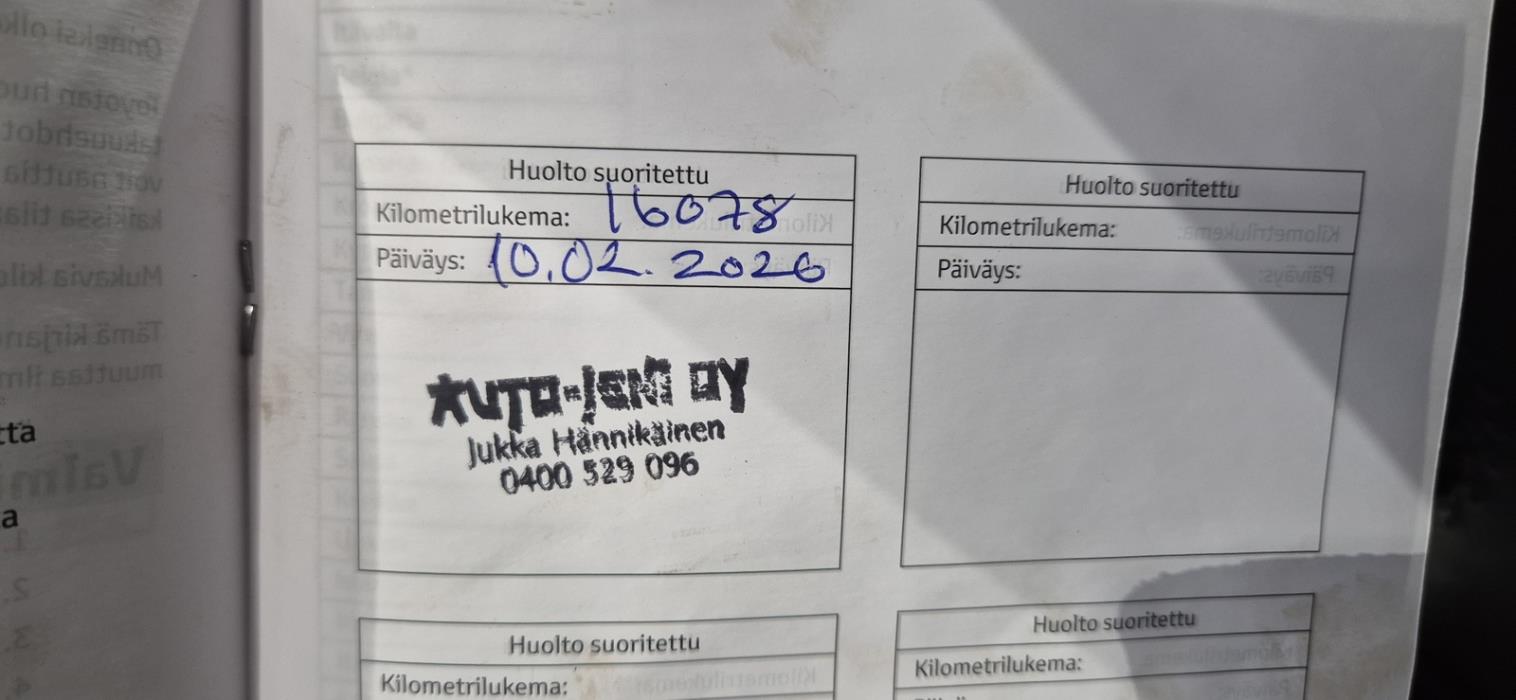 Huolto suoritettu
Kilometrilukema: 16078
Päiväys: 10.02.2026
AUTO-JSKI OY
Jukka Hännikäinen
0400 529 096
Huolto suoritettu
Kilometrilukema:
Päiväys:
Huolto suoritettu
Kilometrilukema:
Huolto suoritettu
Kilometrilukema:
tta
a